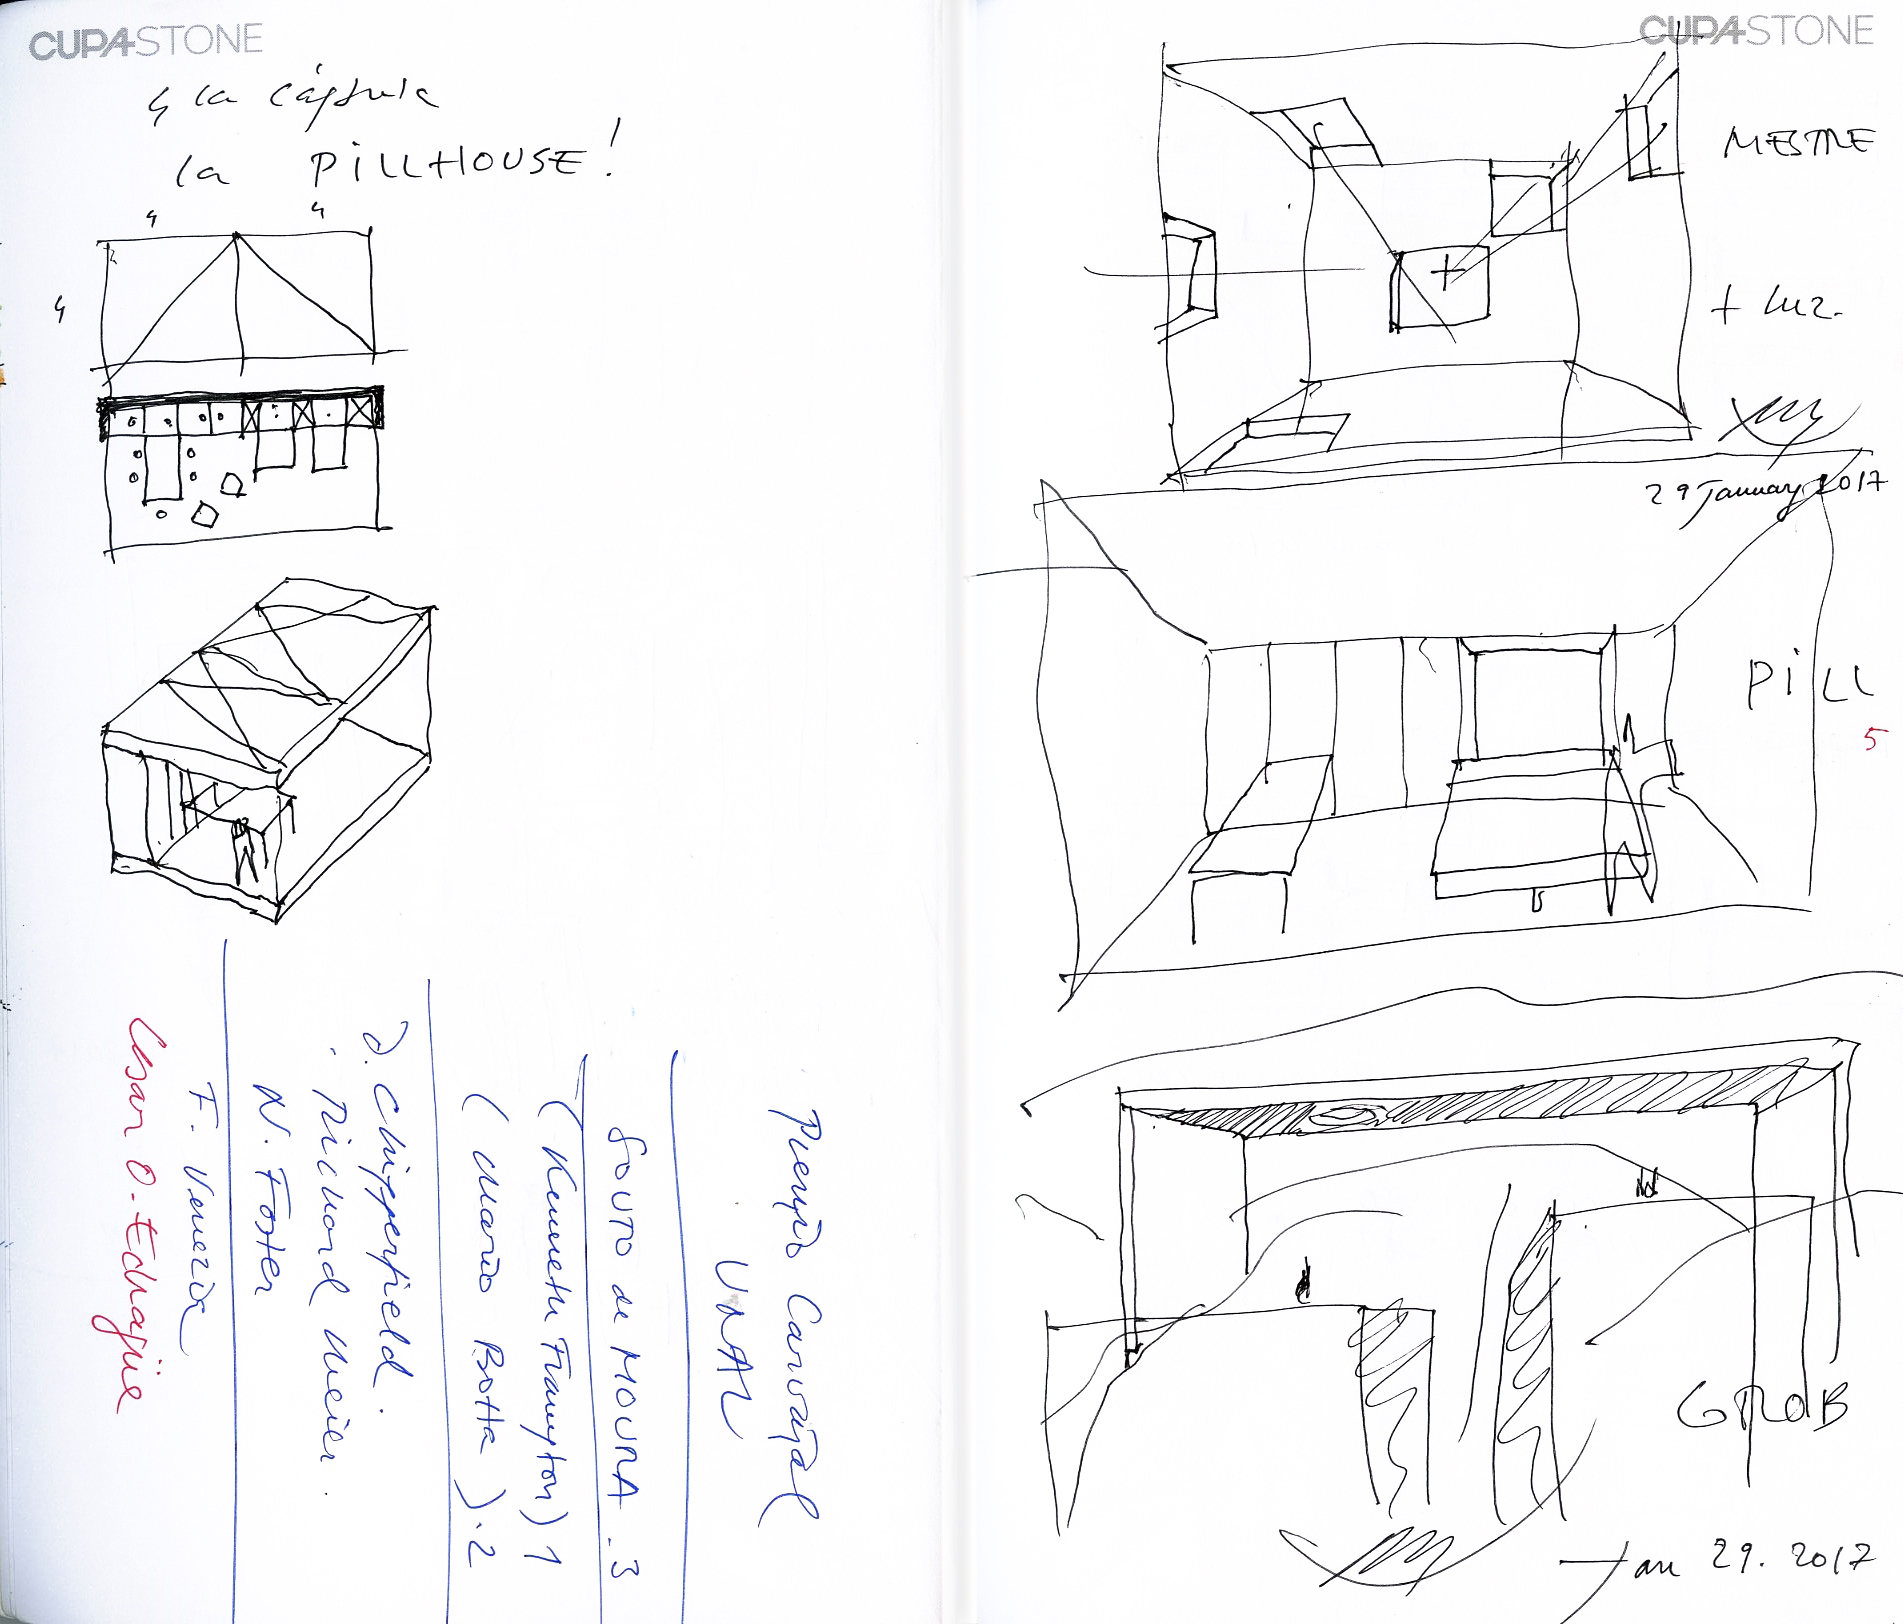 CUPASTONE
y la cápsula
la PiLLHOUSE!
4 4
4
Premio Carvajal
UNAV
SOUTO de MOURA . 3
(Kenneth Frampton) 1
(Mario Botta).2
D. Chipperfield.
. Richard Meier.
N. Foster
F. Venezia
Cesar O. Echagüe
CUPASTONE
MESTRE
+ luz.
29 January 2017
PiLL
5
GROB
Jan 29. 2017